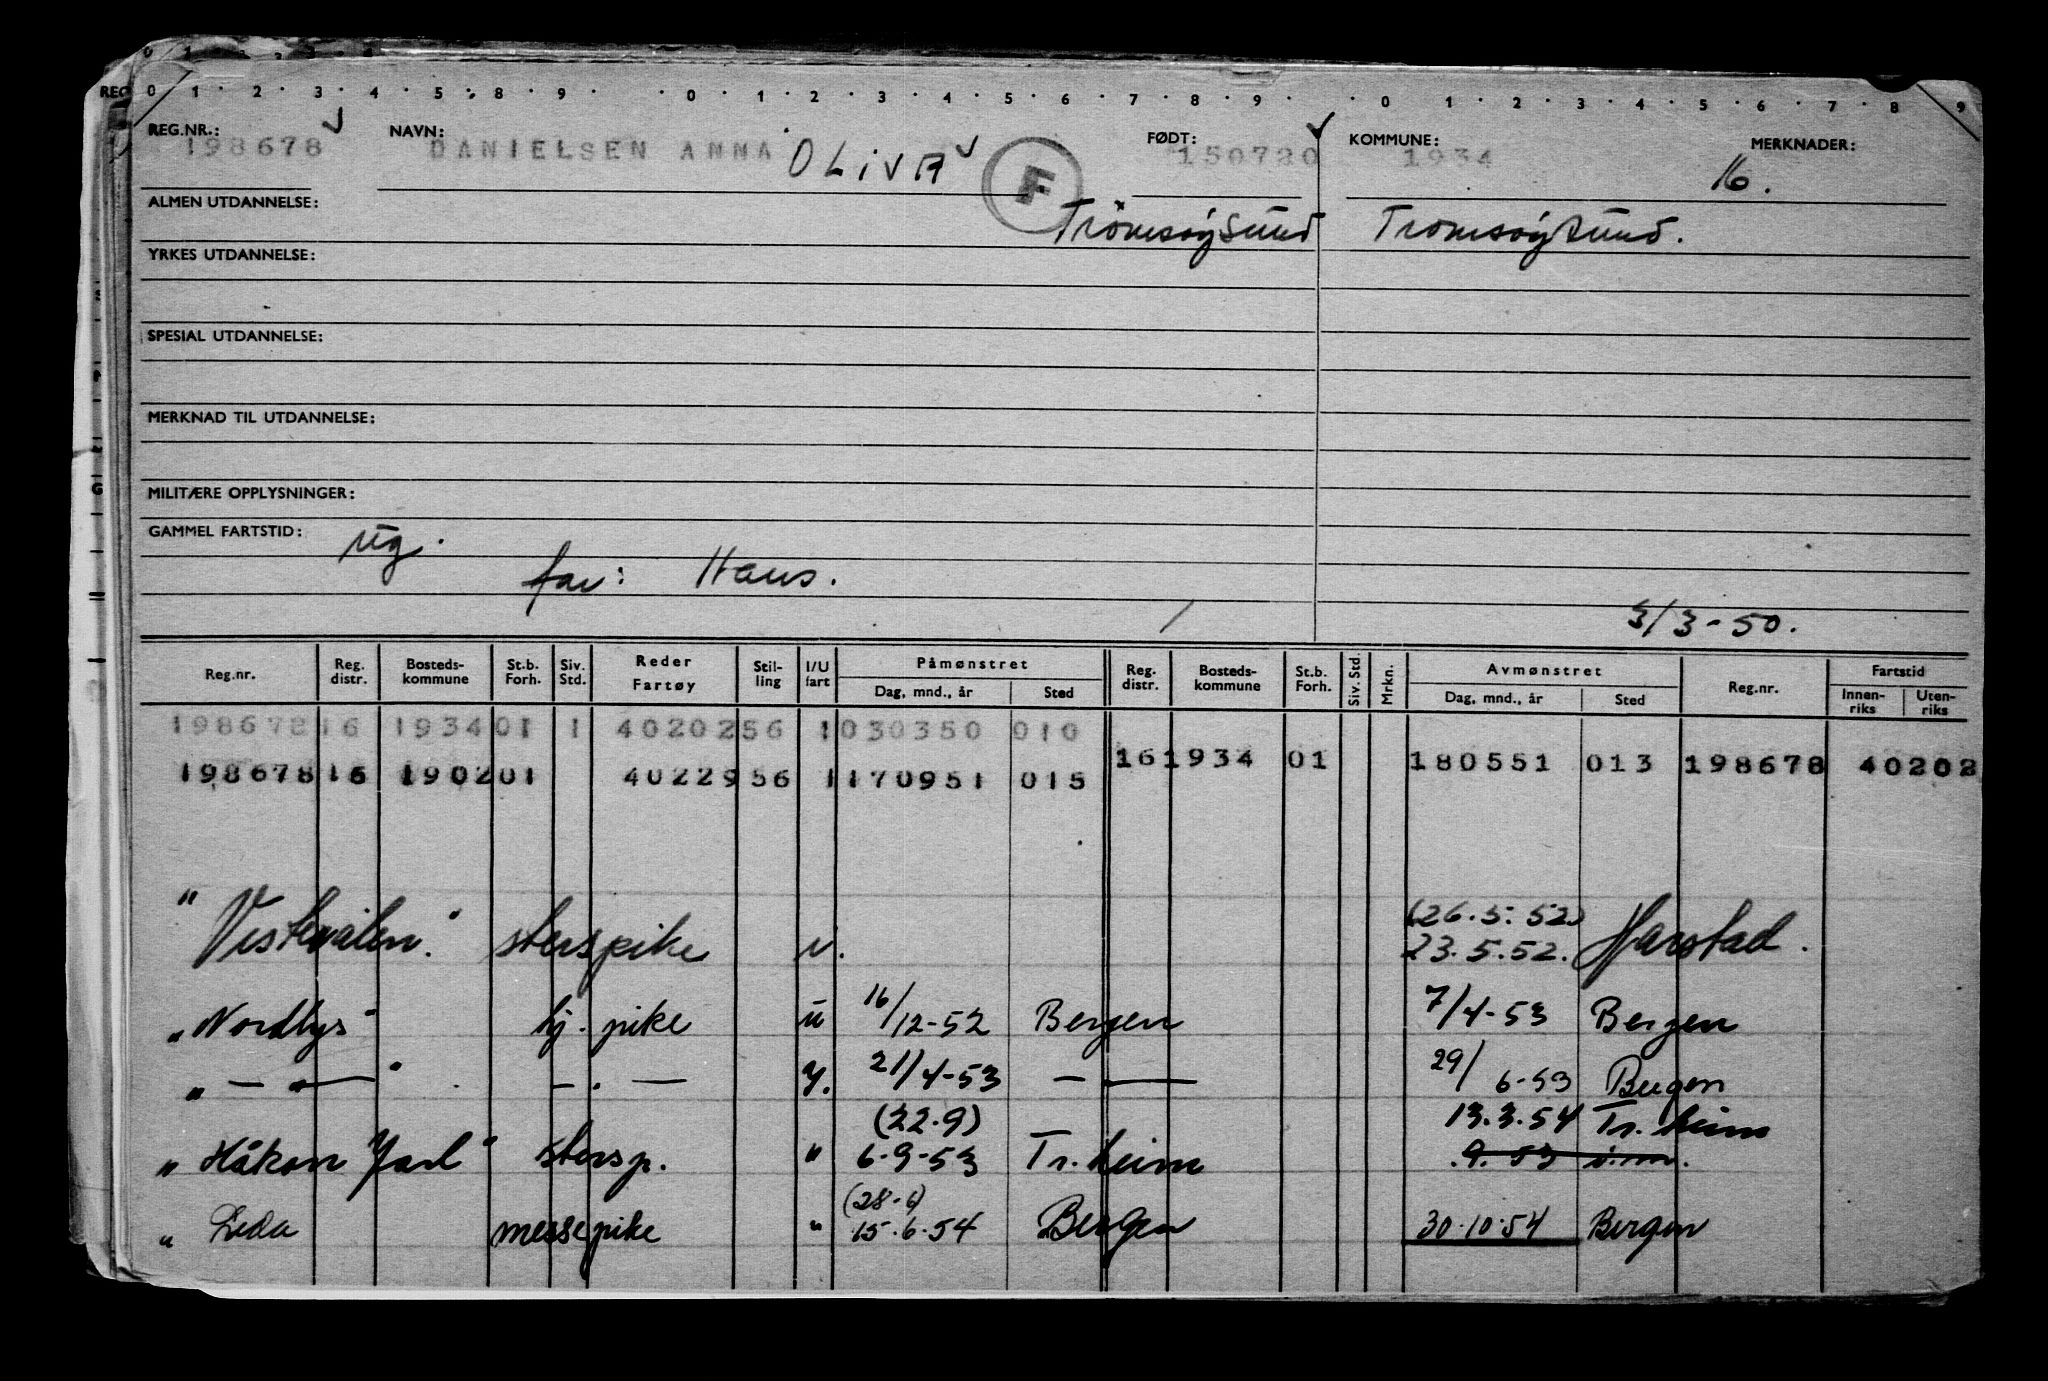 REG 0 1 2 3 4 5 6 8 9 0 1 2 3 4 5 6 7 8 9 0 1 2 3 4 5 6 7 8 9
REG.NR.: 198678 NAVN: DANIELSEN ANNA OLIVA F FØDT: 150720 KOMMUNE: 1934 MERKNADER: 16.
ALMEN UTDANNELSE: Tromsøysund Tromsøysund.
YRKES UTDANNELSE:
SPESIAL UTDANNELSE:
MERKNAD TIL UTDANNELSE:
MILITÆRE OPPLYSNINGER:
GAMMEL FARTSTID: ug.
far: Hans.
3/3-50.
Reg.nr. Reg. distr. Bosteds-kommune St.b. Forh. Siv. Std. Reder Fartøy Stil-ling I/U fart Påmønstret Dag, mnd., år Sted Reg. distr. Bosteds-kommune St.b. Forh. Siv. Std. Mrkn. Avmønstret Dag, mnd., år Sted Reg.nr. Fartstid Innen-riks Uten-riks
198678 16 1934 01 1 40202 56 1 030350 010 16 1934 01 180551 013 198678 40202
198678 16 1902 01 40229 56 1 170951 015
(26.5.52)
"Vesterålen" sterspike 23.5.52. Harstad.
"Nordlys" hj. pike u 16/12-52 Bergen 7/4-53 Bergen
" — " — " — . — 21/4-53 — 29/6-53 Bergen
(22.9) 13.3.54 Tr.heim
"Håkon Jarl" stersp. " 6-9-53 Tr.heim .9.53
(28.6)
" Leda messepike " 15.6.54 Bergen 30.10.54 Bergen